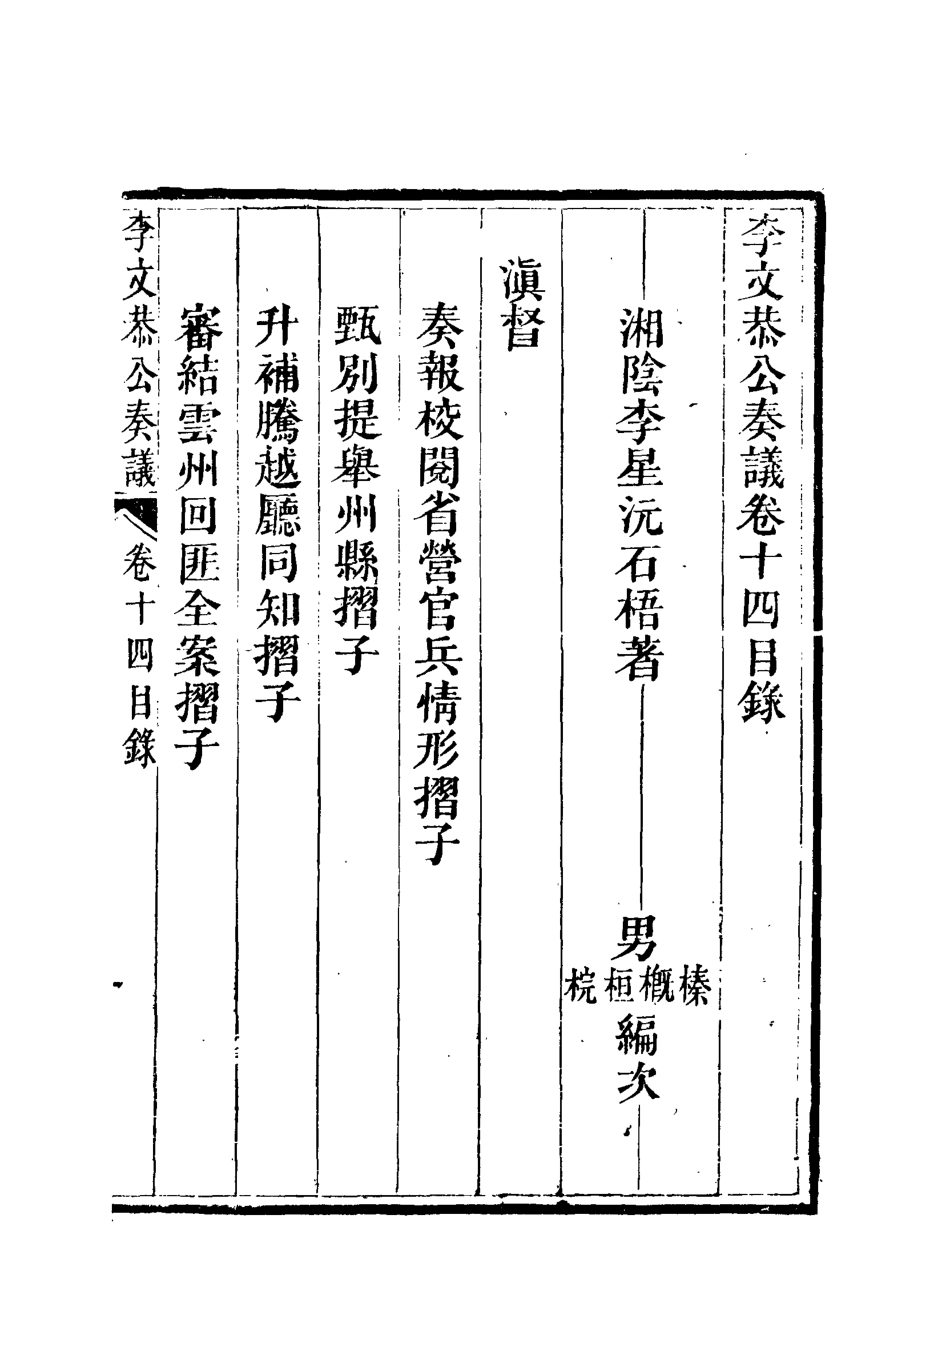 李文恭公奏議卷十四目錄
湘陰李星沅石梧著 男榛概桓梡編次
滇督
奏報校閱省營官兵情形摺子
甄別提舉州縣摺子
升補騰越廳同知摺子
審結雲州回匪全案摺子
李文恭公奏議 卷十四目錄